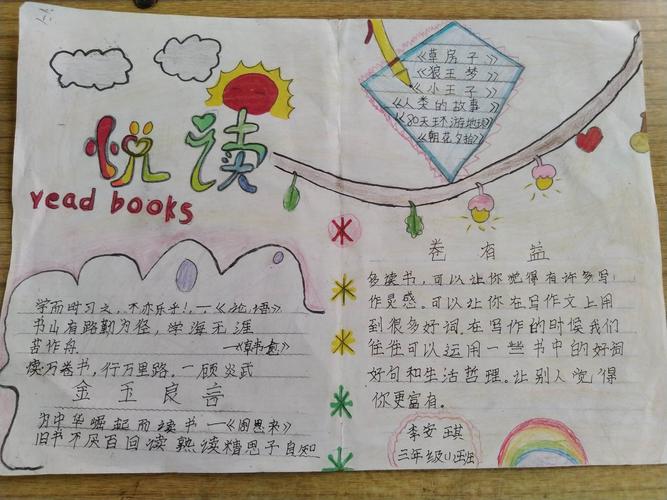 悦读
read books
学而时习之,不亦乐乎!,一《论语》
书山有路勤为径,学海无涯
苦作舟 一《韩愈》
读万卷书,行万里路.一顾炎武
金玉良言
为中华崛起而读书一《周恩来》
旧书不厌百回读 熟读精思子自知
《草房子》
《狼王梦》
《小王子》
《人类的故事》
《80天环游地球》
《朝花夕拾》
卷有益
多读书,可以让你觉得有许多写
作灵感.可以让你在写作文上用
到很多好词.在写作的时候我们
往往可以运用一些书中的好词
好句和生活哲理.让别人觉得
你更富有.
李安琪
三年级